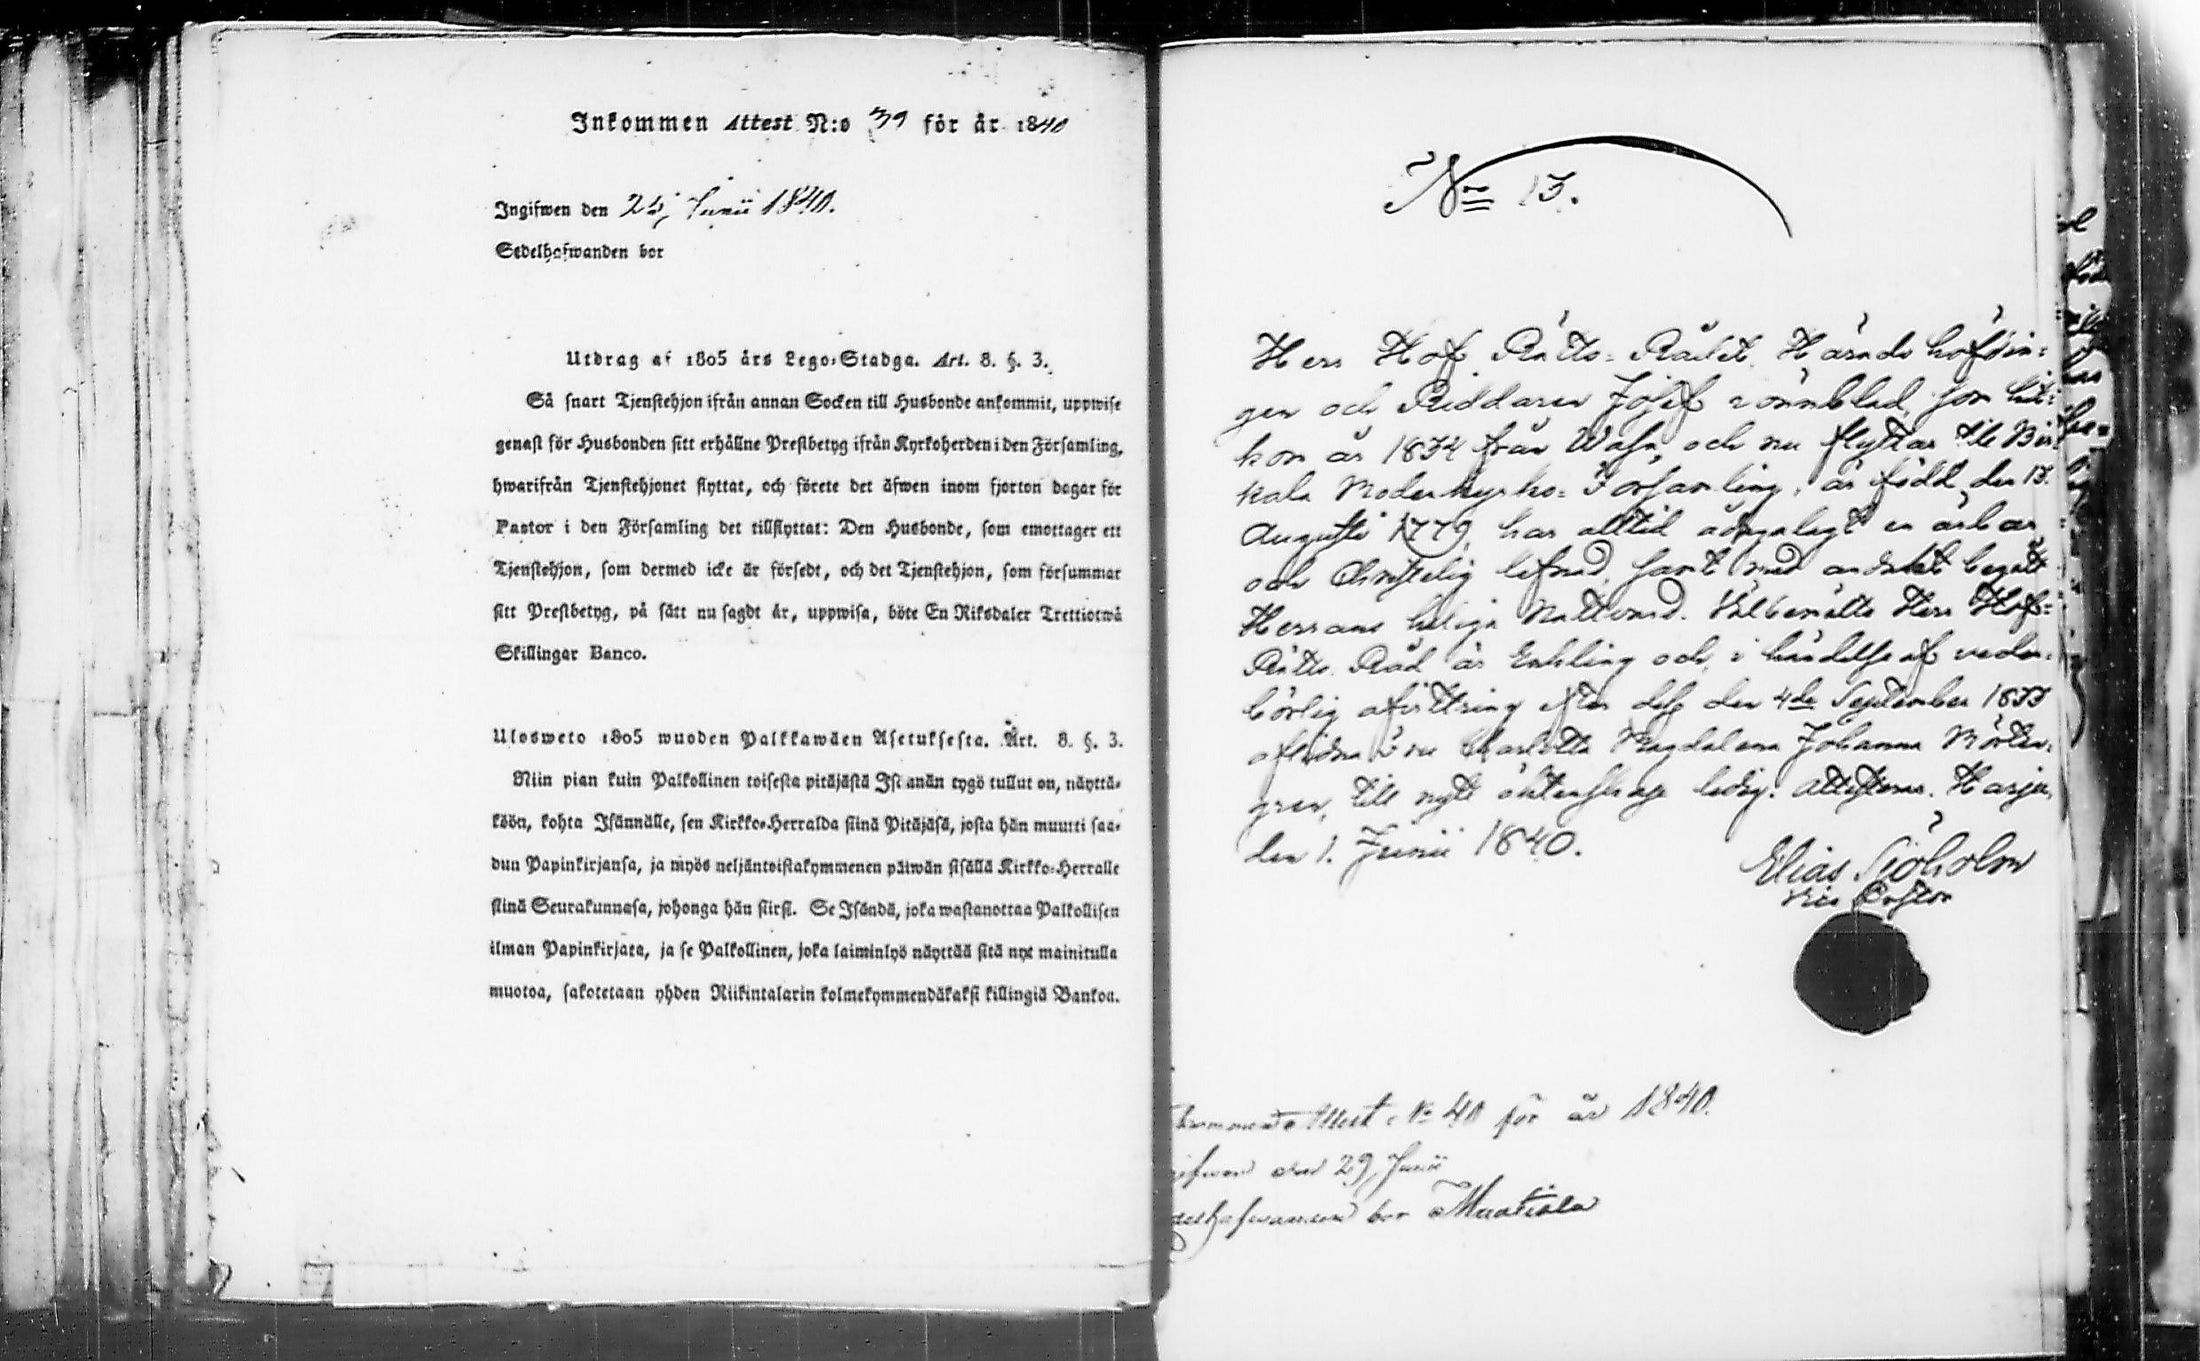 Inkommen Attest N:o 39 för år 1840
Ingifwen den 25 Junii 1840.
Sedelhafwanden bor
Utdrag af 1805 års Lego-Stadga. Art. 8. §. 3.
Så snart Tjenstehjon ifrån annan Socken till Husbonde ankommit, uppwise
genast för Husbonden sitt erhållne Prestbetyg ifrån Kyrkoherden i den Församling,
hwarifrån Tjenstehjonet flyttat, och förete det äfwen inom fjorton dagar för
Pastor i den Församling det tillflyttat: Den Husbonde, som emottager ett
Tjenstehjon, som dermed icke är försedt, och det Tjenstehjon, som försummar
sitt Prestbetyg, på sätt nu sagdt är, uppwisa, böte En Riksdaler Trettiotwå
Skillingar Banco.
Ulosweto 1805 wuoden Palkkawäen Asetuksesta. Art. 8. §. 3.
Niin pian kuin Palkollinen toisesta pitäjästä Isännän tygö tullut on, näyttä-
köön, kohta Isännälle, sen Kirkko-Herralda siinä Pitäjäsä, josta hän muutti saa-
dun Papinkirjansa, ja myös neljäntoistakymmenen päiwän sisällä Kirkko-Herralle
siinä Seurakunnasa, johonga hän siirsi. Se Isändä, joka wastanottaa Palkollisen
ilman Papinkirjata, ja se Palkollinen, joka laiminlyö näyttää sitä nyt mainitulla
muotoa, sakotetaan yhden Riikintalarin kolmekymmendäkaksi killingiä Bankoa.
No 13.
Herr Hof Rätts-Rådet, Häradshöfdin-
gen och Riddaren Josef Rönnblad, som hit-
kom år 1834 från Wasa, och nu flyttar till Bir-
kala Moderkyrko-Församling, är född den 13.
Augusti 1779, har alltid ådagalagt en ärbar
och Christelig lefnad, samt med andakt begått
Herrans heliga Nattvard. Välbemälte Herr Hof-
Rätts Råd är Enkling och, i händelse af veder-
börlig afvittring efter dess den 4de September 1833
aflidna Fru Charlotta Magdalena Johanna Mörten-
gren, till nytt äktenskap ledig. Attesterar. Harju,
den 1. Junii 1840.
Elias Sjöholm
Vice Pastor
Attest No 40 för år 1840.
den 29 Junii
bor Muotiala